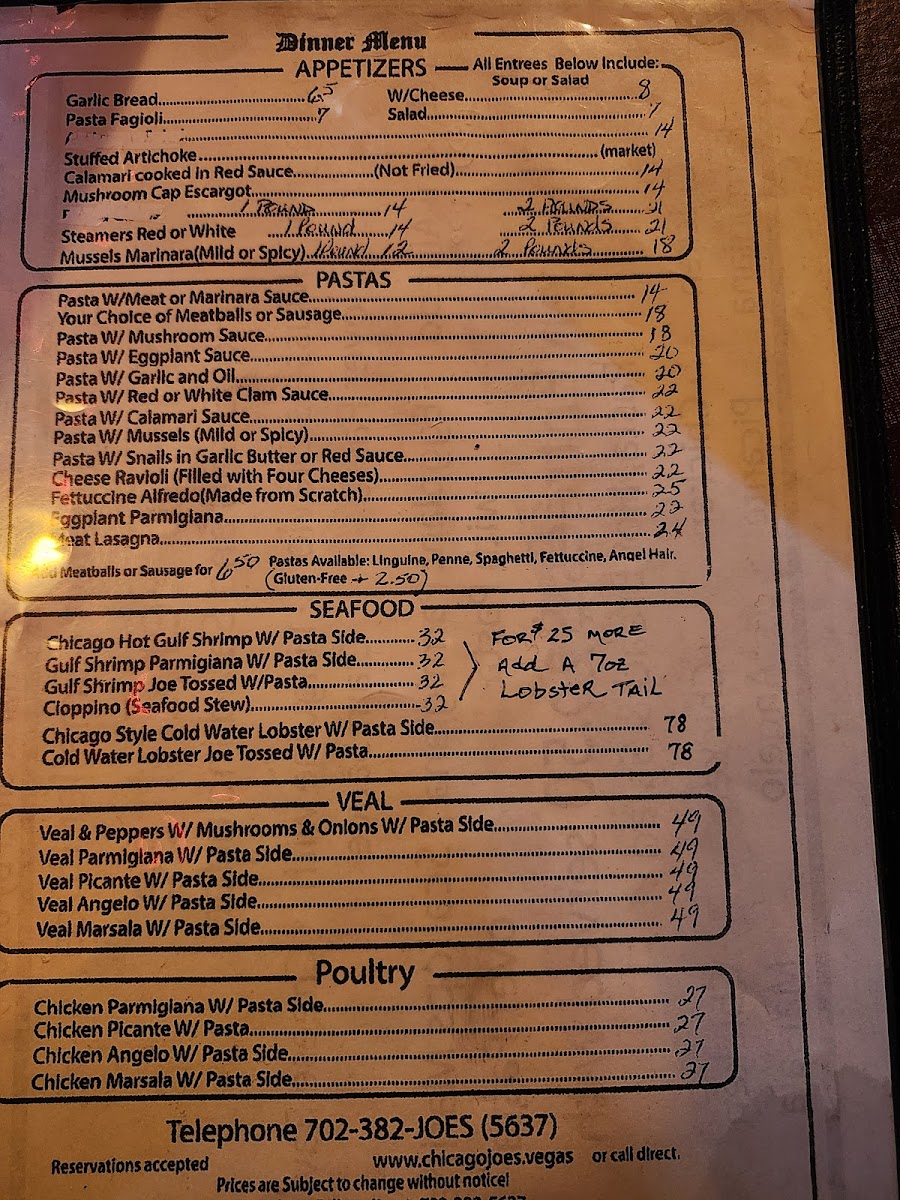 Dinner Menu
APPETIZERS All Entrees Below Include:
Soup or Salad
Garlic Bread 6.5 W/Cheese 8
Pasta Fagioli 7 Salad 7
14
Stuffed Artichoke (market)
Calamari cooked in Red Sauce (Not Fried) 14
Mushroom Cap Escargot 14
1 POUND 14 2 POUNDS 21
Steamers Red or White 1 Pound 14 2 Pounds 21
Mussels Marinara(Mild or Spicy) 1 Pound 12 2 Pounds 18
PASTAS
Pasta W/Meat or Marinara Sauce 14
Your Choice of Meatballs or Sausage 18
Pasta W/ Mushroom Sauce 18
Pasta W/ Eggplant Sauce 20
Pasta W/ Garlic and Oil 20
Pasta W/ Red or White Clam Sauce 22
Pasta W/ Calamari Sauce 22
Pasta W/ Mussels (Mild or Spicy) 22
Pasta W/ Snails in Garlic Butter or Red Sauce 22
Cheese Ravioli (Filled with Four Cheeses) 22
Fettuccine Alfredo(Made from Scratch) 25
Eggplant Parmigiana 22
Meat Lasagna 24
Add Meatballs or Sausage for 6.50 Pastas Available: Linguine, Penne, Spaghetti, Fettuccine, Angel Hair.
(Gluten-Free + 2.50)
SEAFOOD
Chicago Hot Gulf Shrimp W/ Pasta Side 32
Gulf Shrimp Parmigiana W/ Pasta Side 32
Gulf Shrimp Joe Tossed W/Pasta 32
Cioppino (Seafood Stew) 32
FOR $25 MORE
Add A 7oz
LobsteR TAIL
Chicago Style Cold Water Lobster W/ Pasta Side 78
Cold Water Lobster Joe Tossed W/ Pasta 78
VEAL
Veal & Peppers W/ Mushrooms & Onions W/ Pasta Side 49
Veal Parmigiana W/ Pasta Side 49
Veal Picante W/ Pasta Side 49
Veal Angelo W/ Pasta Side 49
Veal Marsala W/ Pasta Side 49
Poultry
Chicken Parmigiana W/ Pasta Side 27
Chicken Picante W/ Pasta 27
Chicken Angelo W/ Pasta Side 27
Chicken Marsala W/ Pasta Side 27
Telephone 702-382-JOES (5637)
Reservations accepted www.chicagojoes.vegas or call direct.
Prices are Subject to change without notice!